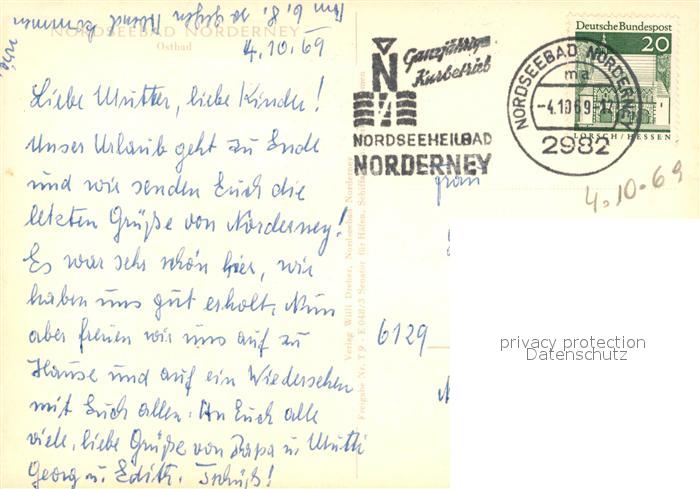 NORDSEEBAD NORDERNEY
Ostbad
4.10.69
Liebe Mutter, liebe Kinder!
Unser Urlaub geht zu Ende
und wir senden Euch die
letzten Grüße von Norderney!
Es war sehr schön hier, wir
haben uns gut erholt. Nun
aber freuen wir uns auf zu
Hause und auf ein Wiedersehen
mit Euch allen. An Euch alle
viele, liebe Grüße von Papa u. Mutti
Georg u. Edith. Tschüß!
Am 6./8. gegen Abend kommen
wir
Verlag Willi Dreher, Nordseebad Norderney
Freigabe Nr. T 9 - E 048/3 Senator für Häfen, Schiffahrt
Ganzjährig
Kurbetrieb
N
NORDSEEHEILBAD
NORDERNEY
NORDSEEBAD NORDERNEY
ma
-4.10.69-17
2982
Deutsche Bundespost
20
LORSCH/HESSEN
4.10.69
Frau
6129
privacy protection
Datenschutz